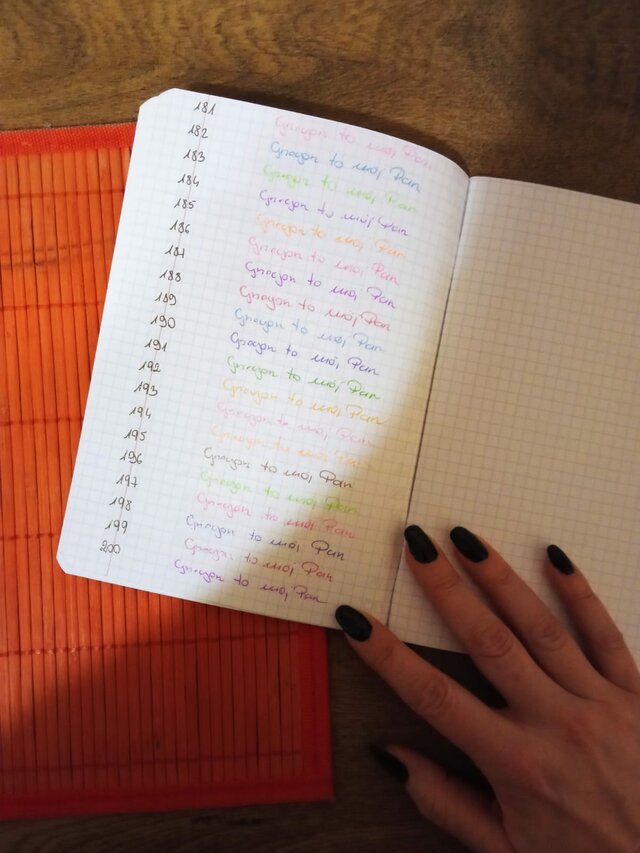 181 Gracjan to mój Pan
182 Gracjan to mój Pan
183 Gracjan to mój Pan
184 Gracjan to mój Pan
185 Gracjan to mój Pan
186 Gracjan to mój Pan
187 Gracjan to mój Pan
188 Gracjan to mój Pan
189 Gracjan to mój Pan
190 Gracjan to mój Pan
191 Gracjan to mój Pan
192 Gracjan to mój Pan
193 Gracjan to mój Pan
194 Gracjan to mój Pan
195 Gracjan to mój Pan
196 Gracjan to mój Pan
197 Gracjan to mój Pan
198 Gracjan to mój Pan
199 Gracjan to mój Pan
200 Gracjan to mój Pan